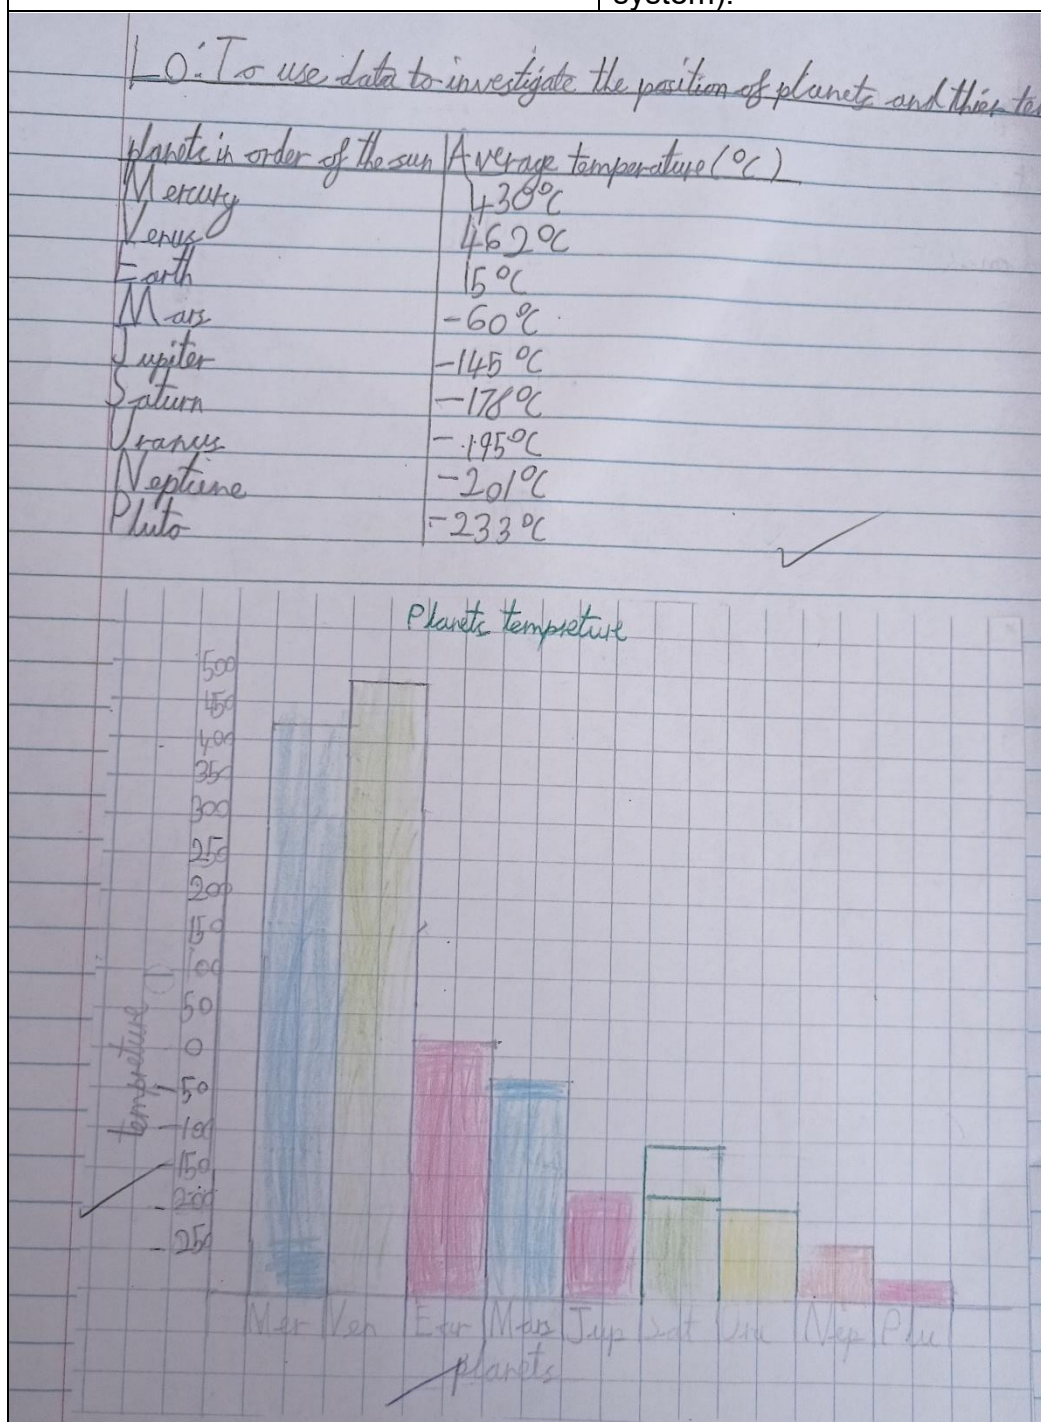 system).
LO: To use data to investigate the position of planets and thier te
planets in order of the sun | Average temperature (°C)
Mercury 430°C
Venus 462°C
Earth 15°C
Mars -60°C
Jupiter -145°C
Saturn -178°C
Uranus -195°C
Neptune -201°C
Pluto -233°C
Planets tempreture
500
450
400
350
300
250
200
150
100
50
0
-50
-100
-150
-200
-250
tempreture
Mer Ven Ear Mars Jup Sat Ura Nep Plu
planets